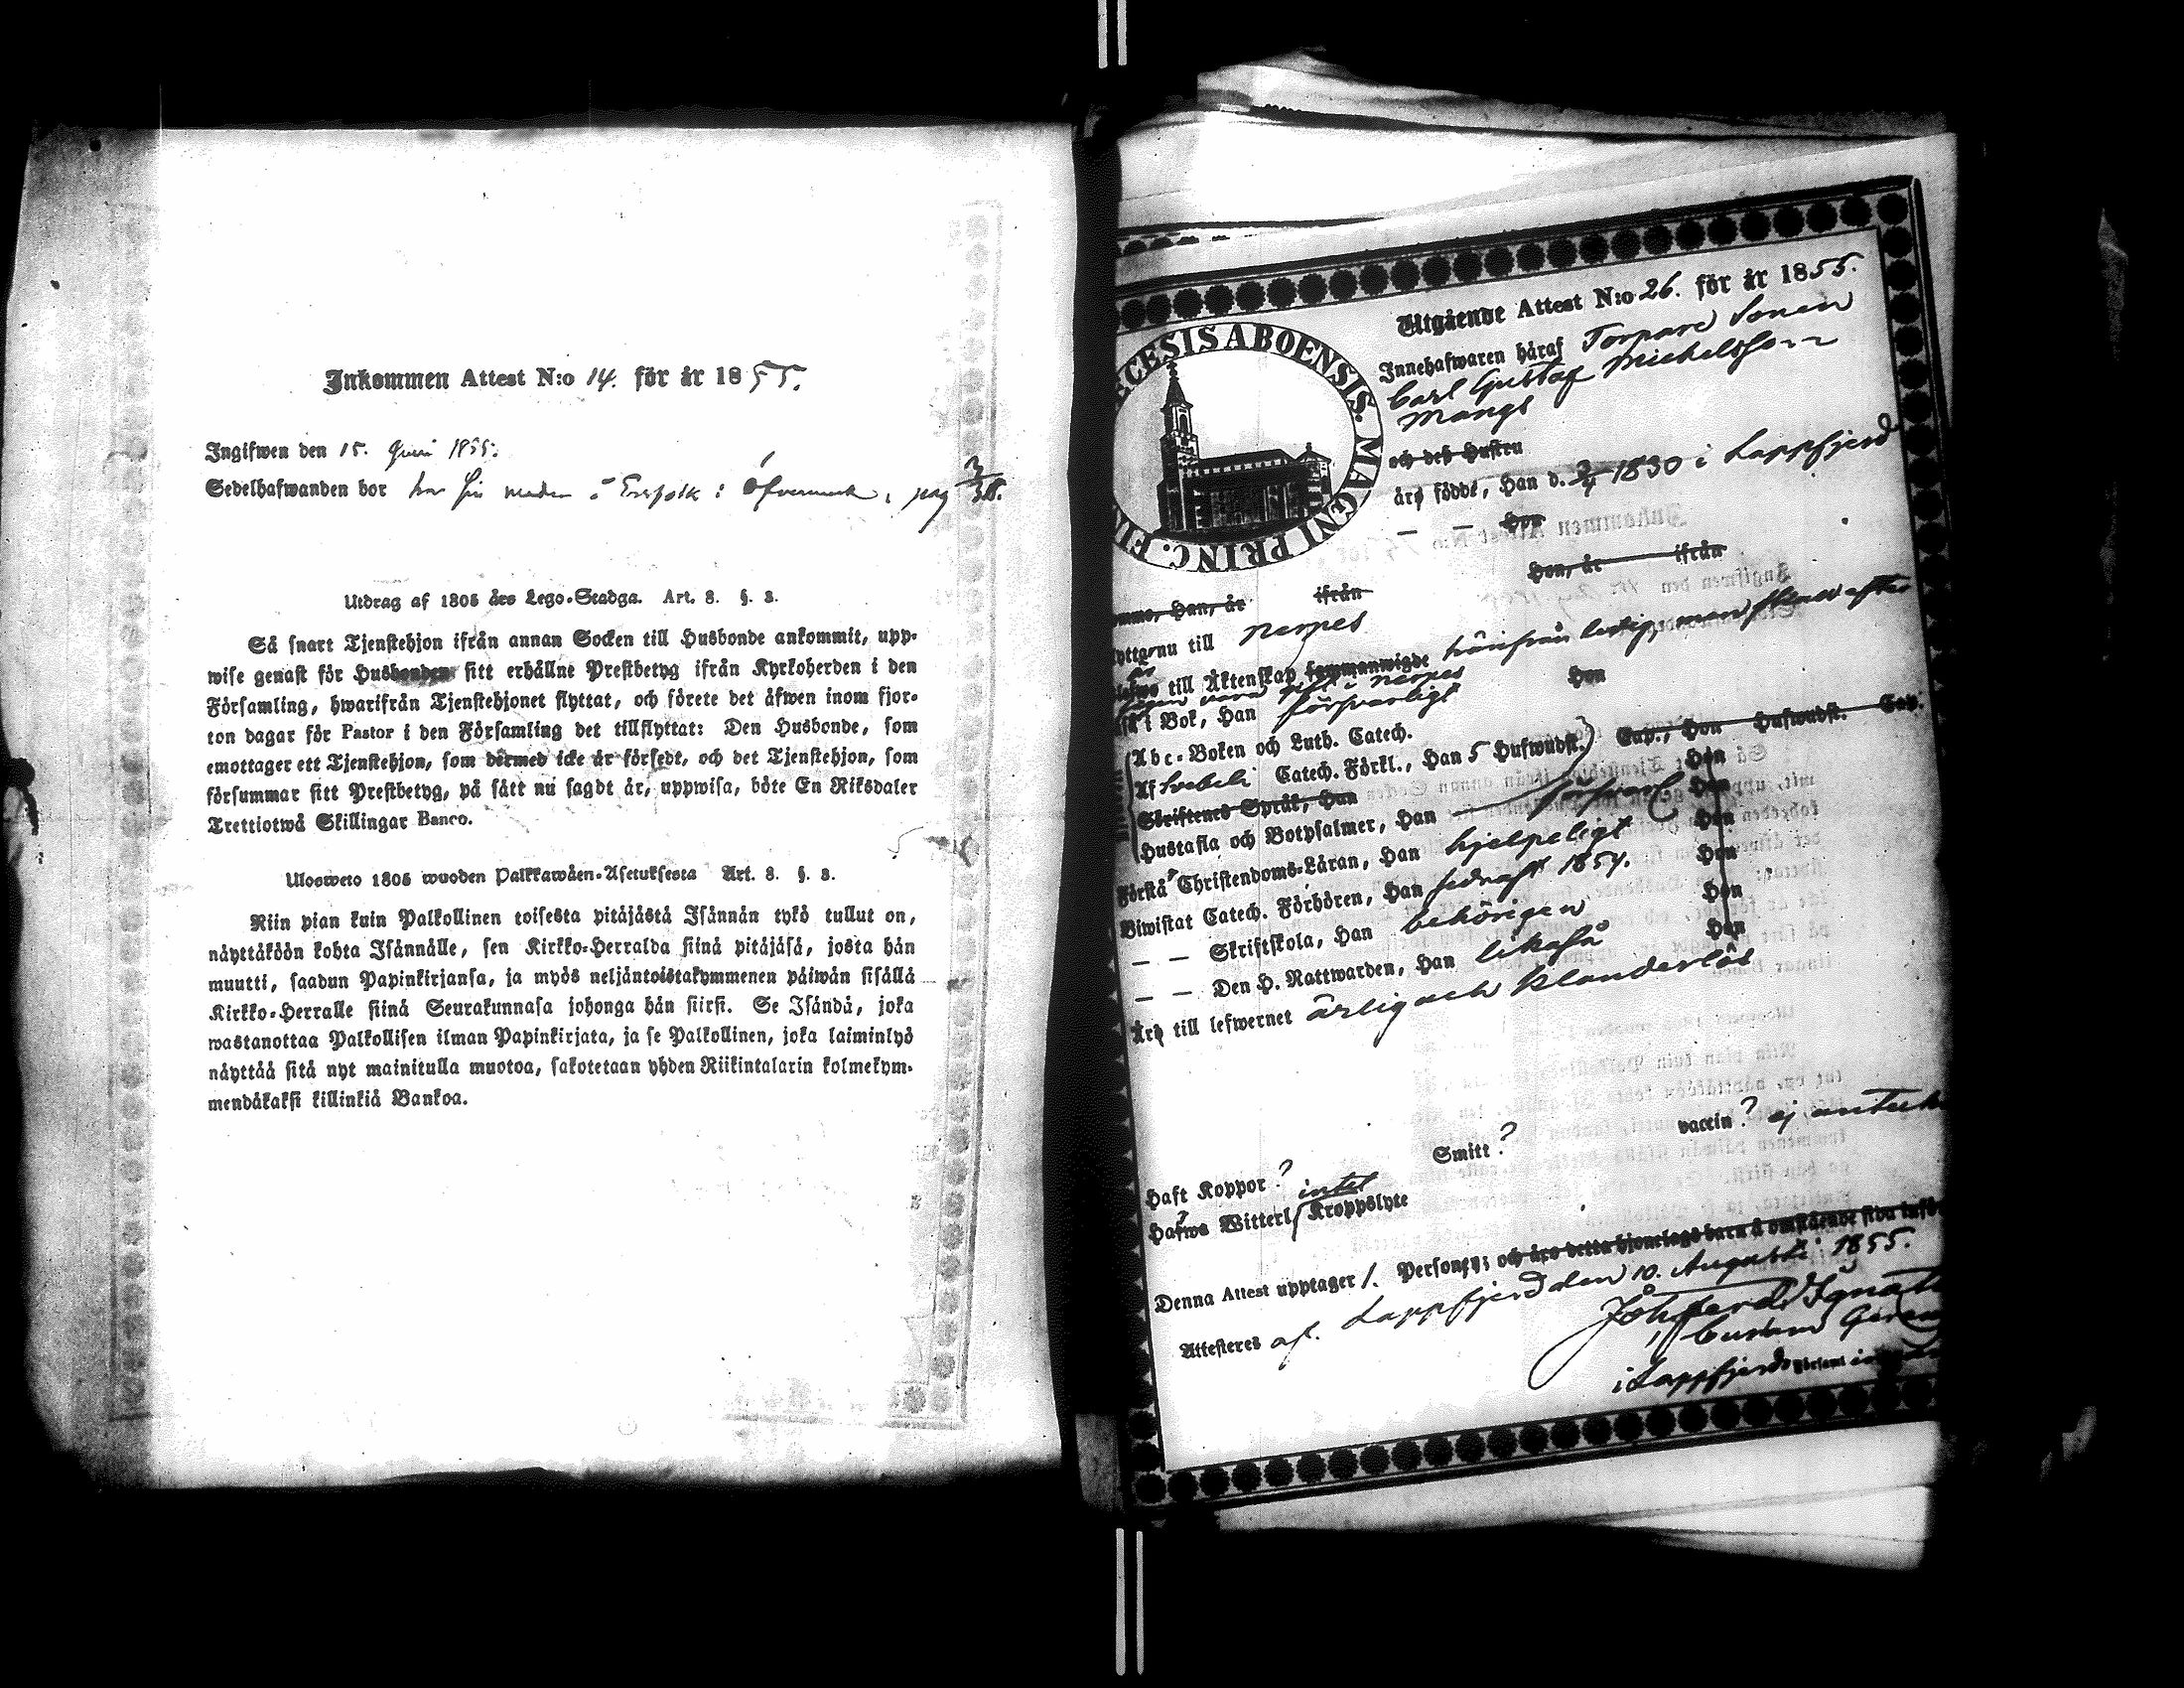 Inkommen Attest N:o 14. för år 1855.
Ingifwen den 15. Juni 1855.
Sedelhafwanden bor hos sin moder i : Öfvermark,
Utdrag af 1805 års Lego-Stadga. Art. 8. §. 3.
Så snart Tjenstehjon ifrån annan Socken till Husbonde ankommit, upp-
wise genast för Husbonden sitt erhållne Prestbetyg ifrån Kyrkoherden i den
Församling, hwarifrån Tjenstehjonet flyttat, och förete det äfwen inom fjor-
ton dagar för Pastor i den Församling det tillflyttat: Den Husbonde, som
emottager ett Tjenstehjon, som dermed icke är försedt, och det Tjenstehjon, som
försummar sitt Prestbetyg, på sätt nu sagdt är, uppwisa, böte En Riksdaler
Trettiotwå Skillingar Banco.
Ulosweto 1805 wuoden Palkkawäen-Asetuksesta Art. 8. §. 3.
Niin pian kuin Palkollinen toisesta pitäjästä Isännän tykö tullut on,
näyttäköön kohta Isännälle, sen Kirkko-Herralda siinä pitäjäsä, josta hän
muutti, saadun Papinkirjansa, ja myös neljäntoistakymmenen päiwän sisällä
Kirkko-Herralle siinä Seurakunnasa johonga hän siirsi. Se Isändä, joka
wastanottaa Palkollisen ilman Papinkirjata, ja se Palkollinen, joka laiminlyö
näyttää sitä nyt mainitulla muotoa, sakotetaan yhden Riikintalarin kolmekym-
mendäkaksi killinkiä Bankoa.
ECESIS ABOENSIS. MAGNI PRINC. FIN
Utgående Attest N:o 26. för år 1855.
Innehafwaren häraf Torpare Sonen
Carl Gustaf Michelsson
Mangs
och deß Hustru
äro födde, Han d. 1830 i Lappfjerd
— — Hon
Han, år ifrån Hon, år ifrån
nu till Nerpes
till Äktenskap sammanwigde härifrån ledig, men efter
vara i Nerpes
i Bok, Han försvarligt Hon
Abc-Boken och Luth. Catech.
Af Svebeli Catech. Förkl., Han 5 Hufwudst. Cap., Hon Hufwudst. Cap.
Skriftenes Språk, Han Hon
Hustafla och Botpsalmer, Han försvarl Hon
Förstå Christendoms-Läran, Han hjelpeligt Hon
Biwistat Catech. Förhören, Han sednast 1854. Hon
— — Skriftskola, Han behörigen Hon
— — Den H. Nattwarden, Han likaså Hon
Äro till lefwernet ärlig och klanderlös
Haft Koppor? Smitt? vaccin? ej
Hafwa Witterl. intet Kroppslyte
Denna Attest upptager 1. Personer; och äro detta hjonelags barn å omstående sida
Attesteras af. Lappfjerd den 10. Augusti 1855.
i Lappfjerds